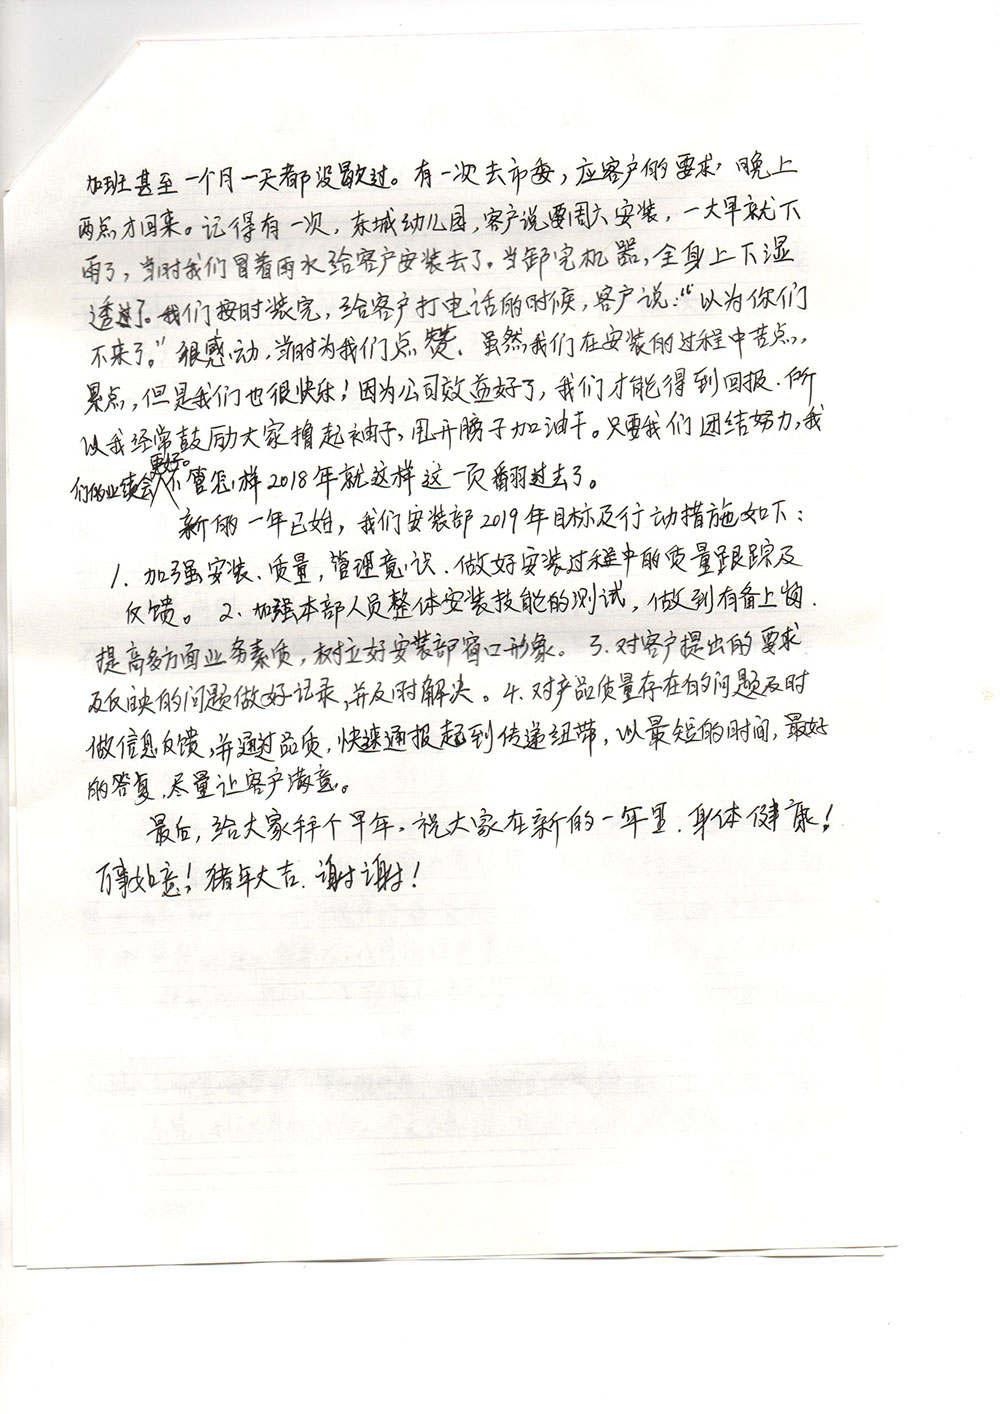 加班甚至一个月一天都没歇过。有一次去市委，应客户的要求，晚上
两点才回来。记得有一次，东城幼儿园，客户说要周六安装，一大早就下
雨了，当时我们冒着雨水给客户安装去了。当卸完机器，全身上下湿
透了。我们按时装完，给客户打电话的时候，客户说：“以为你们
不来了。”很感动，当时为我们点赞。虽然我们在安装的过程中苦点，
累点，但是我们也很快乐！因为公司效益好了，我们才能得到回报。所
以我经常鼓励大家撸起袖子，甩开膀子加油干。只要我们团结努力，我
们的业绩会更好。不管怎样2018年就这样这一页翻过去了。
新的一年已始，我们安装部2019年目标及行动措施如下：
1. 加强安装、质量，管理意识．做好安装过程中的质量跟踪及
反馈。2. 加强本部人员整体安装技能的测试，做到有备上岗．
提高多方面业务素质，树立好安装部窗口形象。3. 对客户提出的要求
及反映的问题做好记录，并及时解决。4. 对产品质量存在的问题及时
做信息反馈，并通过品质，快速通报起到传递纽带，以最短的时间，最好
的答复．尽量让客户满意。
最后，给大家拜个早年，祝大家在新的一年里．身体健康！
万事如意！猪年大吉．谢谢！